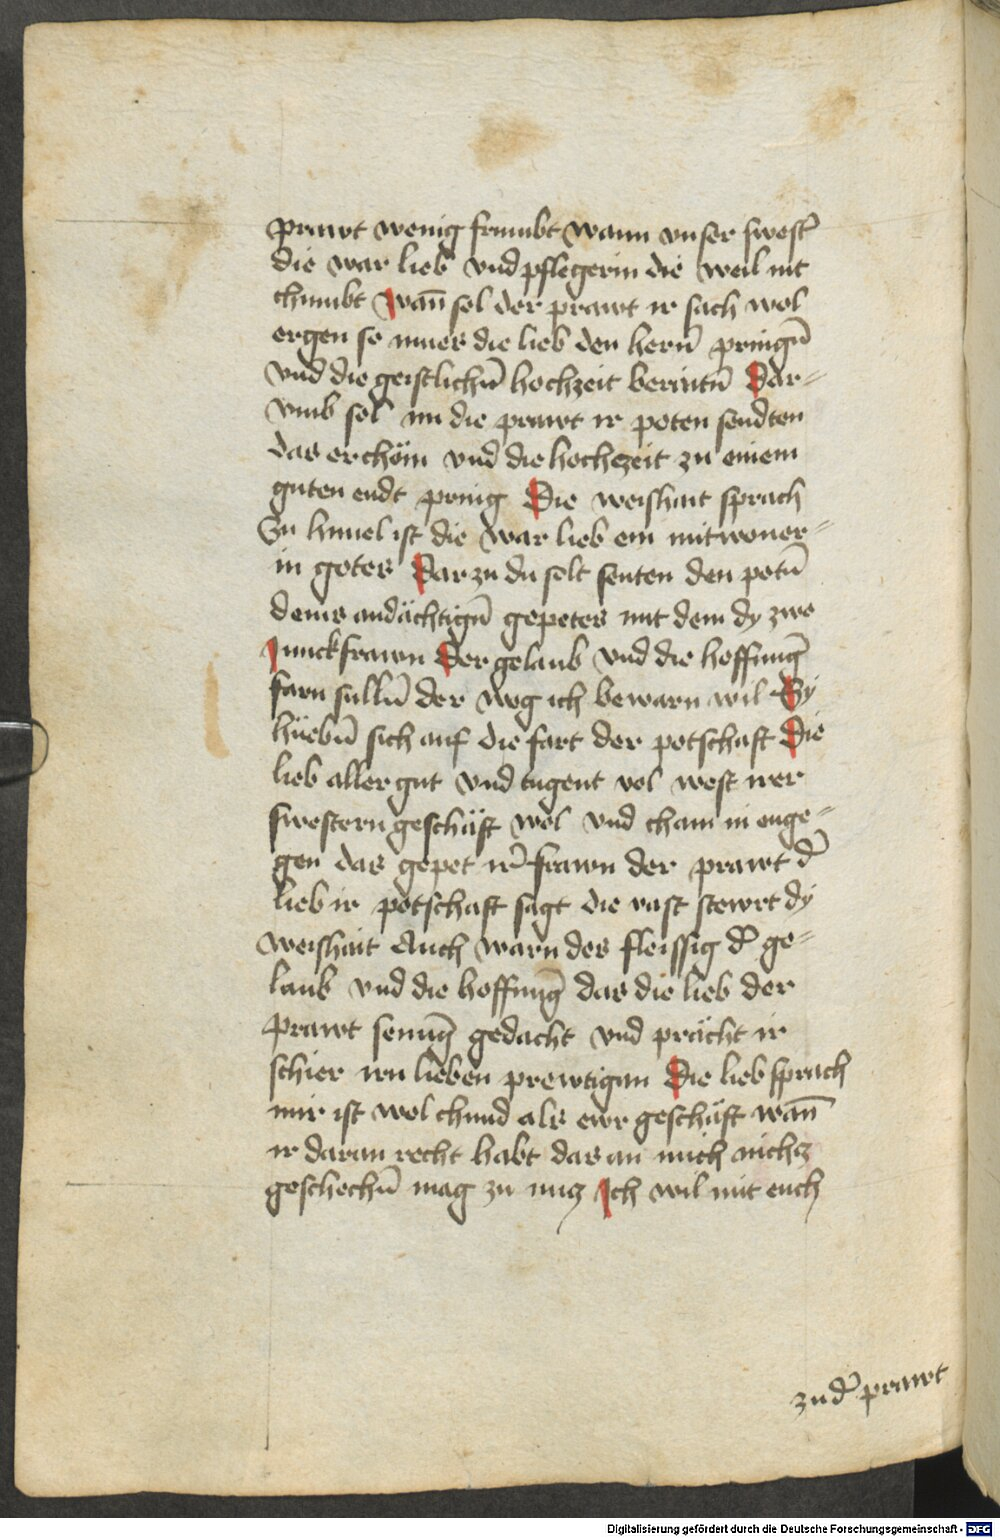 prawt wenig frumbt wann vnser swest̉
die war lieb vnd pflegerin die weil nit
chumbt wan̄ sol der prawt ir sach wol
ergen so mues die lieb den hern̄ pringn̄
vnd die geistlichn̄ hochzeit beraitn̄ Dar-
vmb sol im die prawt ir poten sendten
das er chöm vnd die hochczeit zu einem
guten endt pring Die weishait sprach
Zu himel ist die war lieb ein mitwoner-
in gotes Darzu du solt senten den potn̄
deins andächtign̄ gepetes mit dem dy zwo
Junckfrawn Der gelaub vnd die hoffunḡ
farn sulln̄ der weg ich bewarn wil Sy
hüebn̄ sich auf die fart der potschaft Die
lieb aller gut vnd tugent vol west irer
swestern geschäft wol vnd cham in enge-
gen das gepet ir̉ frawn der prawt d̉
lieb ir potschaft sagt die vast stewrt dy
weishait Auch warn des fleissig d̉ ge-
laub vnd die hoffunḡ das die lieb der
prawt senunḡ gedacht vnd prächt ir
schier irn lieben prewtigan Die lieb sprach
mir ist wol chund als ewr geschäft wan̄
ir daran recht habt das an mich nichcz
geschechn̄ mag zu nucz Ich wil mit euch
zu d̉ prawt
Digitalisierung gefördert durch die Deutsche Forschungsgemeinschaft - DFG